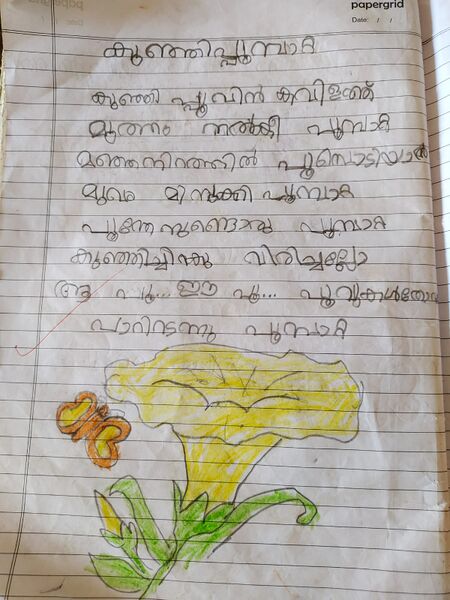 papergrid
Date: / /
കുഞ്ഞിപ്പൂമ്പാറ്റ
കുഞ്ഞി പ്പൂവിൻ കവിളത്ത്
മുത്തം നൽകീ പൂമ്പാറ്റ
മഞ്ഞനിറത്തിൽ പൂമ്പൊടിയാൽ
മുഖം മിനുക്കി പൂമ്പാറ്റ
പൂന്തേനുണ്ടൊരു പൂമ്പാറ്റ
കുഞ്ഞിച്ചിറകു വിരിച്ചല്ലോ
ആ പൂ... ഈ പൂ... പൂവുകൾതോറും
പാറിനടന്നു പൂമ്പാറ്റ